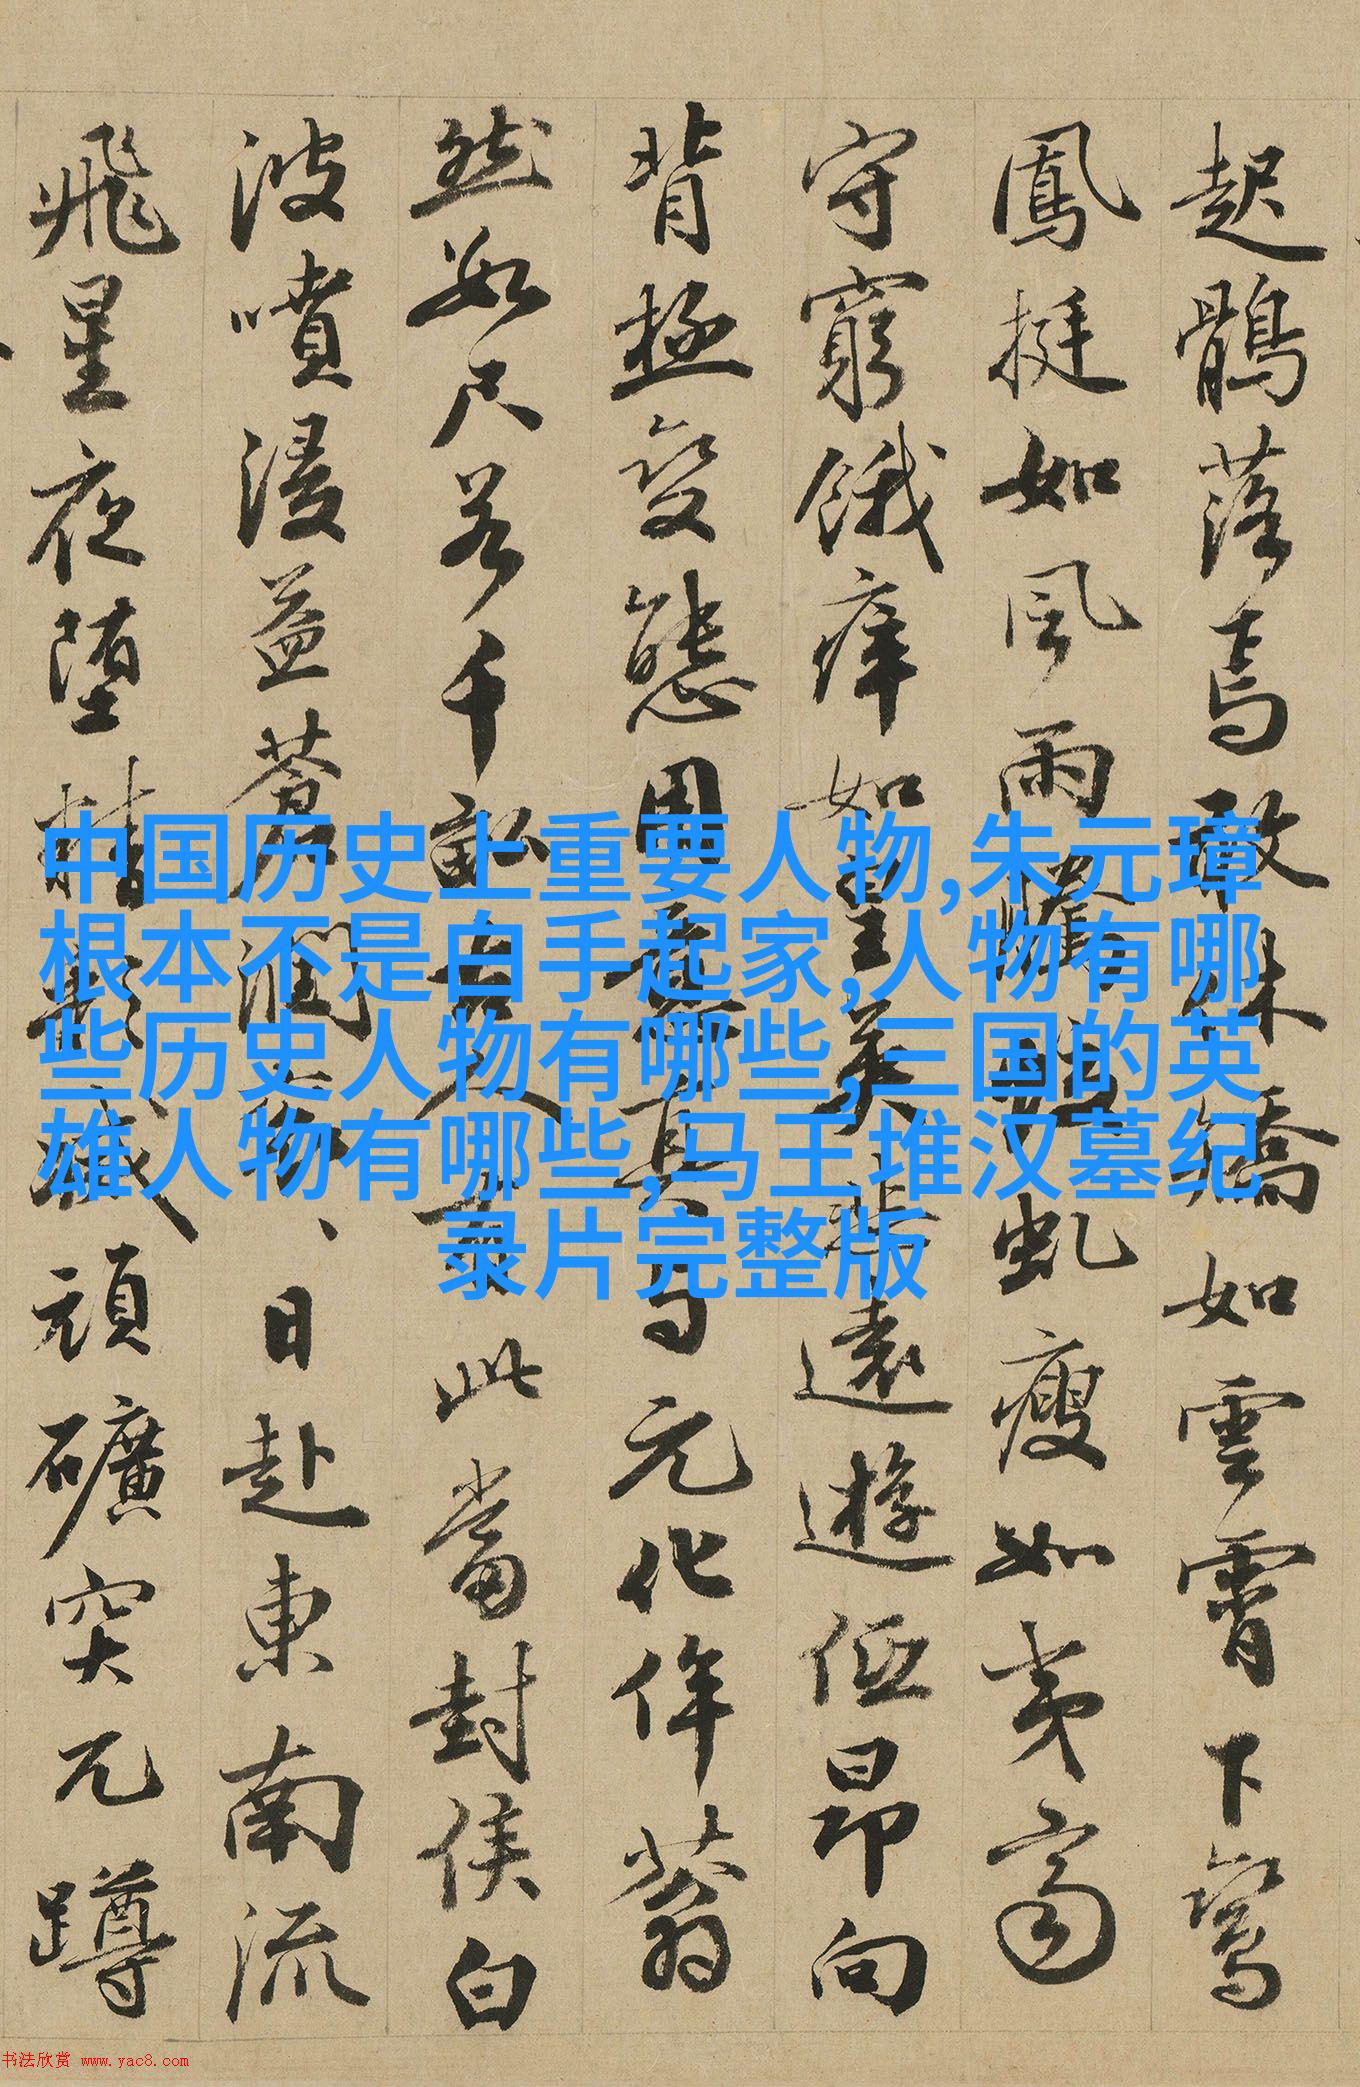 起鶻落焉敢矯如雲霄下鸞
鳳挺如風雨擢虬瘦如夷齊
守窮餓如皇英悲遠遊低昂向
背極變態用意與元化侔蔡翁
然數尺若千畝古人此當封侯白
波噴浸益蒼潤物、日赴東南流
飛星夜墮精滅頑礦突兀蹲
中国历史上重要人物,朱元璋
根本不是白手起家,人物有哪
些历史人物有哪些,三国的英
雄人物有哪些,马王堆汉墓纪
录片完整版
书法欣赏 www.yac8.com